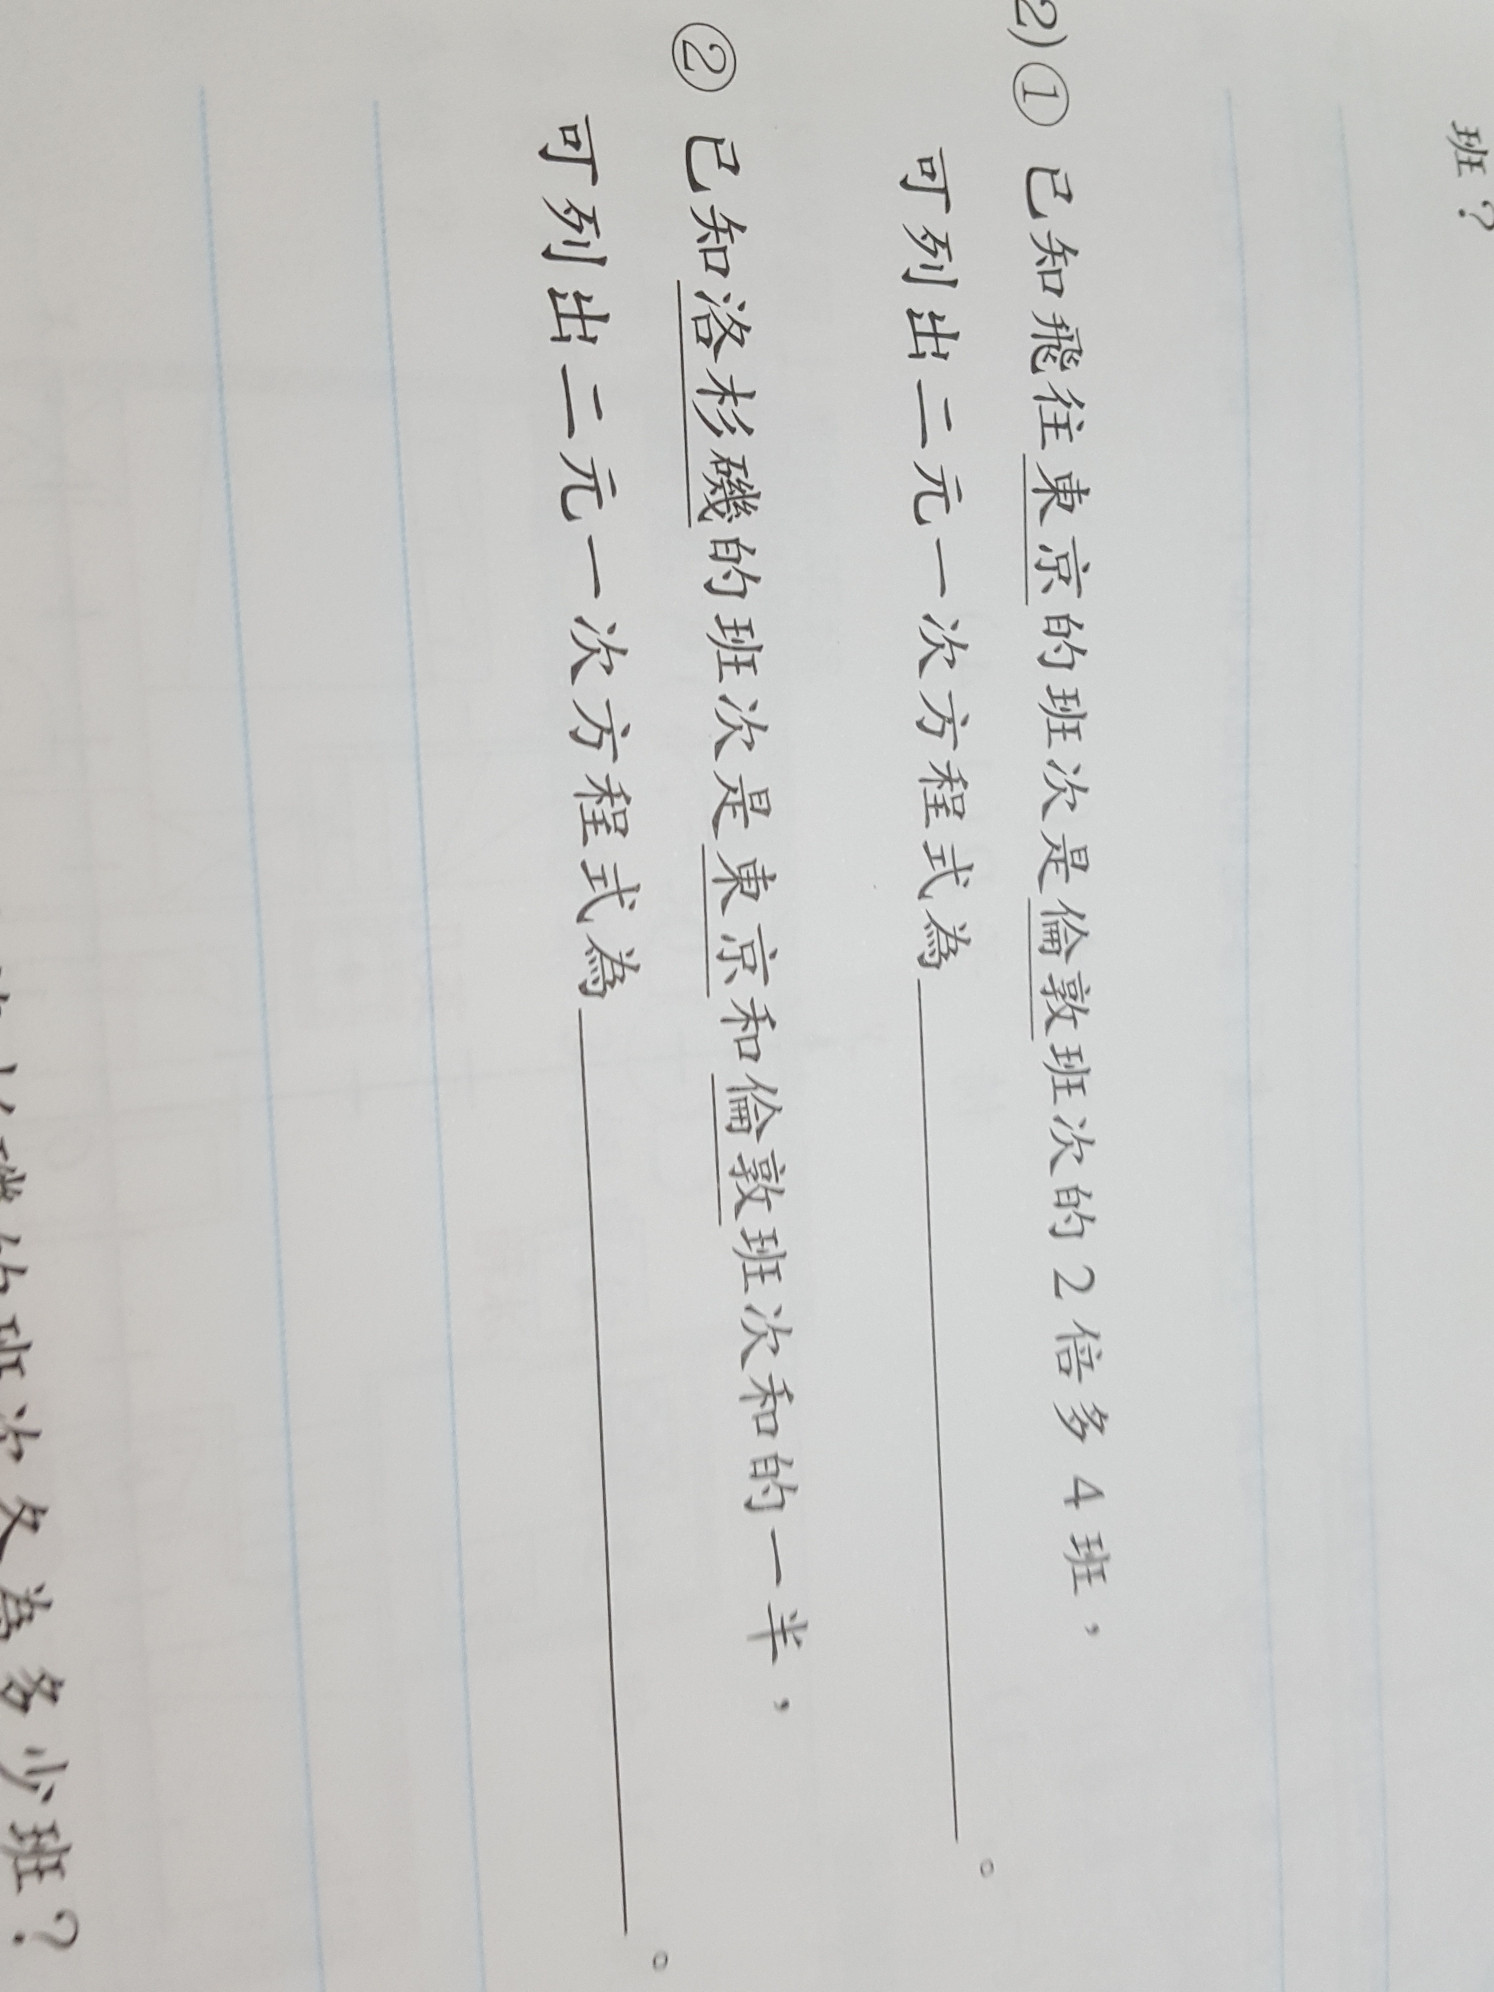 班？
2)① 已知飛往東京的班次是倫敦班次的2倍多4班，
可列出二元一次方程式為＿＿＿＿＿＿＿＿＿＿。
② 已知洛杉磯的班次是東京和倫敦班次和的一半，
可列出二元一次方程式為＿＿＿＿＿＿＿＿＿＿。
磯的班次各為多少班？